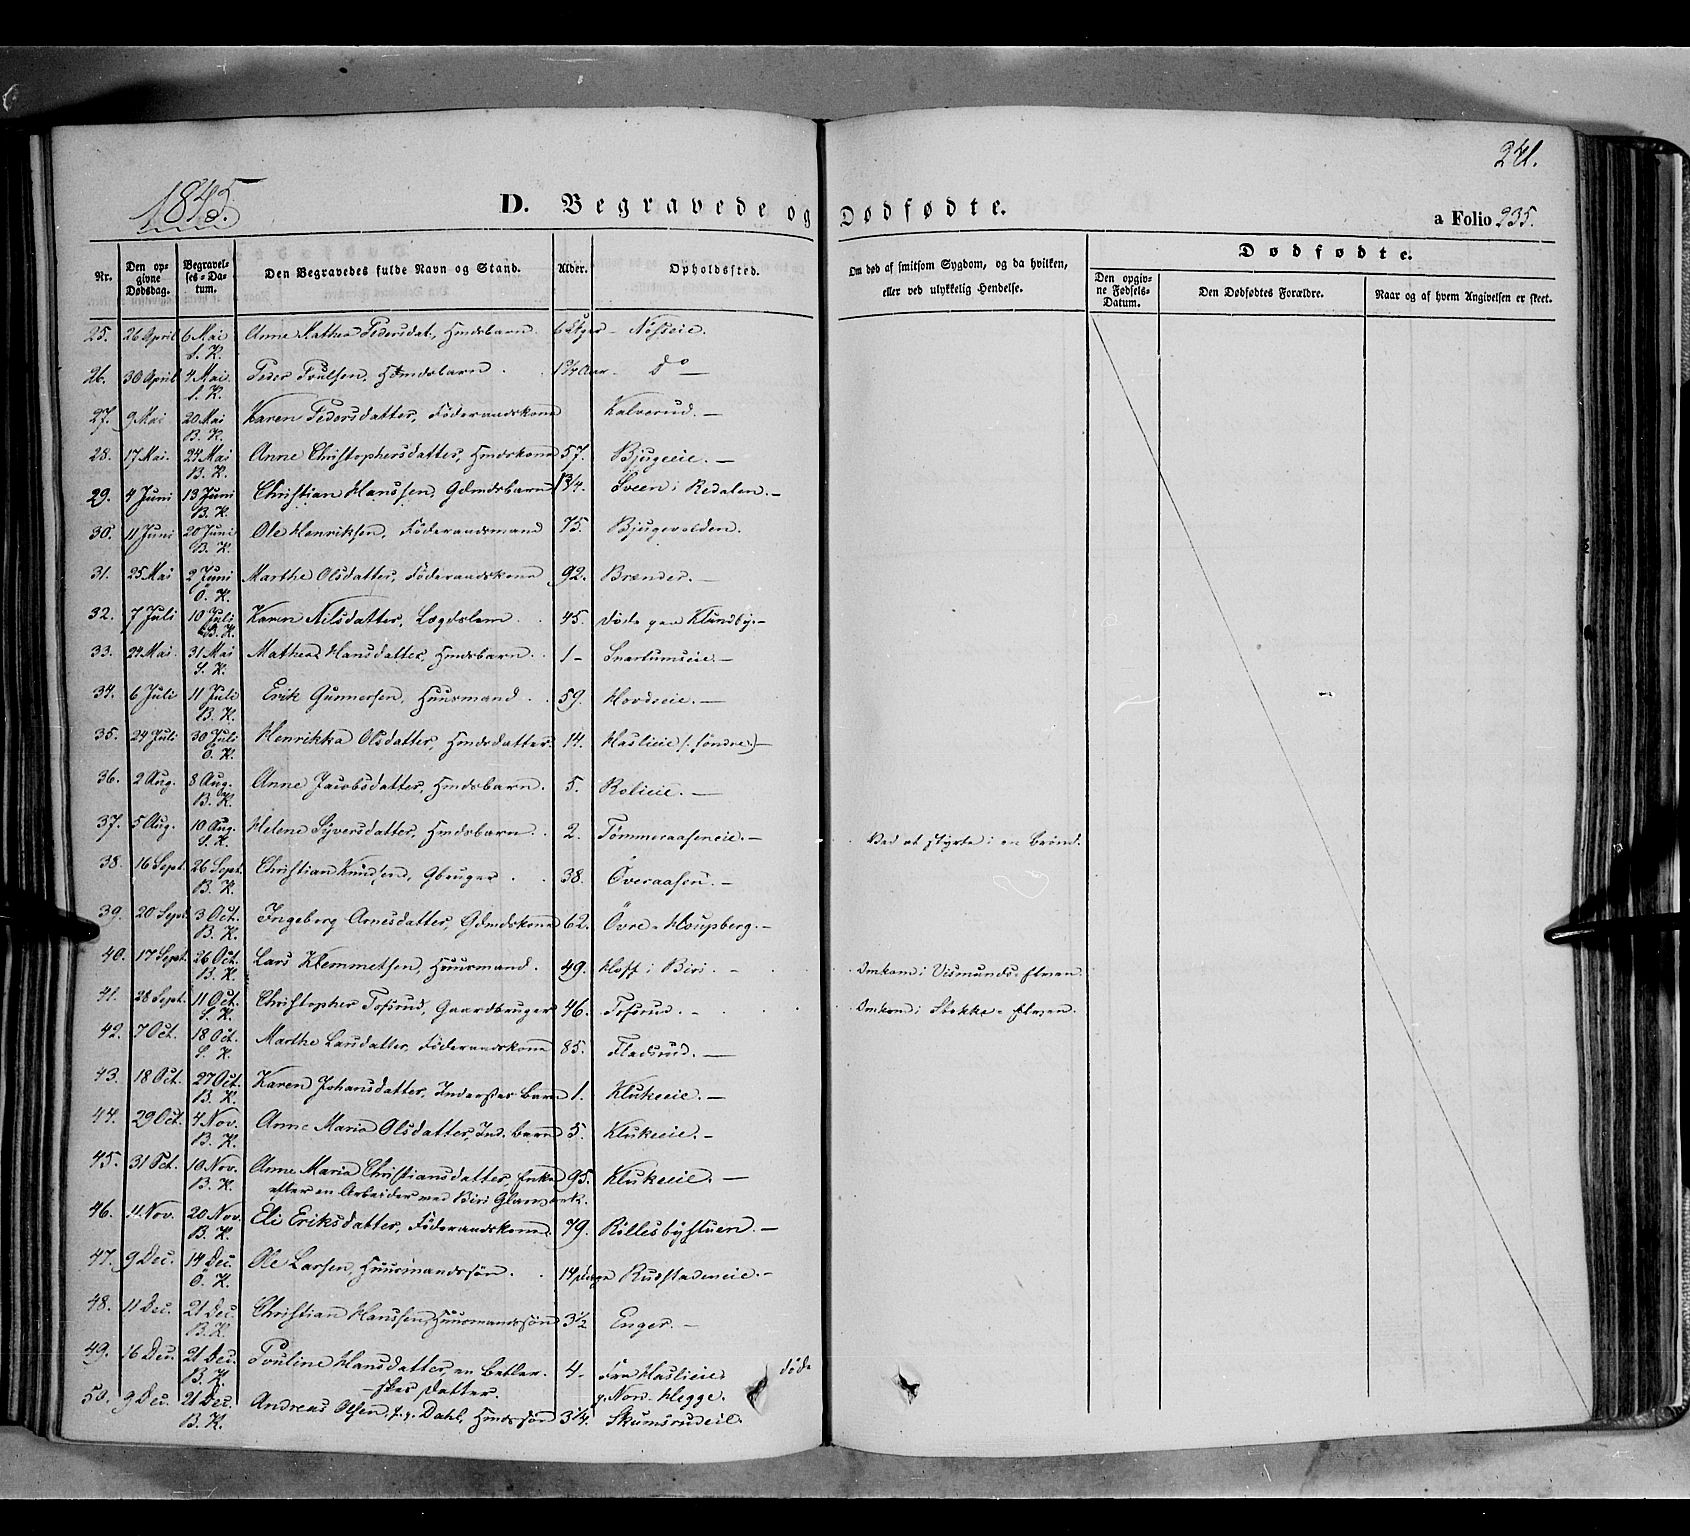 241.
1845.
D. Begravede og Dødfødte.
a Folio 235.
Nr.
Den opgivne Dødsdag.
Begravelses-Datum.
Den Begravedes fulde Navn og Stand.
Alder.
Opholdssted.
Om død af smitsom Sygdom, og da hvilken, eller ved ulykkelig Hendelse.
Dødfødte.
Den opgivne Fødsels-Datum.
Den Dødfødtes Forældre.
Naar og af hvem Angivelsen er skeet.
25. 26 April 6 Mai S. K. Anne Mathea Pedersdat, Hmdsbarn 6 Uger
26. 30 April 4 Mai. S. K. Peder Poulsen, Hmdsbarn. 1¾ Aar D⁰ —
27. 9 Mai 20 Mai B. K. Karen Pedersdatter, Föderaadskone Kalverud. —
28. 17 Mai. 24 Mai B. K. Anne Christophersdatter, Hmdskone 57. Bjugeeie. —
29. 4 Juni 13 Juni B. K. Christian Hanssen, Gdmdsbarn 1¾. Sveen i Redalen. —
30. 11 Juni 20 Juni B. K. Ole Henriksen, Föderaadsmand 75. Bjugevolden.
31. 25 Mai 2 Juni Ö. K. Marthe Olsdatter, Föderaadskone 92. Brænder. —
32. 7 Juli 10 Juli B. K. Karen Nilsdatter, Lægdslem. 45. døde paa Klundby. —
33. 24 Mai. 31 Mai S. K. Mathea Hansdatter, Hmdsbarn. 1 - Snartumseie. —
34. 6 Juli 11 Juli B. K. Erik Gunnersen, Huusmand. 59. Hovdeeie. —
35. 24 Juli 30 Juli Ö. K. Henrikka Olsdatter, Hmdsdatter. 14. Haslieie /: søndre :/ —
36. 2 Aug. 8 Aug. B. K. Anne Jacobsdatter, Hmdsbarn. 5. Rolieie. —
37. 5 Aug. 10 Aug. S. K. Helene Syversdatter, Hmdsbarn. 2. Tömmeraaseneie. — Ved at styrte i en Brönd.
38. 16 Sept. 26 Sept. B. K. Christian Knudsen, Gbruger. 38. Överaasen. —
39. 20 Sept. 3 Oct. B. K. Ingeborg Arnesdatter, Gdmdskone 62. Övre - —
40. 17 Sept. 26 Oct. B. K. Lars Klemmetsen, Huusmand. 49. Hoff i Biri. - Omkom i Vismunds-Elven.
41. 28 Sept. 11 Oct. S. K. Christopher Tofsrud, Gaardbruger 46. Tofsrud. - Omkom i Stokke-Elven.
42. 7 Oct. 18 Oct. S. K. Marthe Larsdatter, Föderaadskone 85. Fladsrud. —
43. 18 Oct. 27 Oct. B. K. Karen Johansdatter, Inderstes Barn 1. Klukeeie. —
44. 29 Oct. 4 Nov. B. K. Anne Maria Olsdatter, Ind. barn 5. Klukeeie. —
45. 31 Oct. 10 Nov. B. K. Anne Maria Christiansdatter, Enke 95. Klukeeie. —
efter en Arbeider ved Biri Glasværk.
46. 11 Nov. 20 Nov. B. K. Eli Eriksdatter, Föderaadskone. 79. Rillesbystuen. —
47. 9 Dec. 14 Dec. Ö. K. Ole Larsen, Huusmandssön. 14 dage Rudstadeneie. -
48. 11 Dec. 21 Dec. B. K. Christian Hanssen, Huusmandssön 3½ Enger. —
49. 16 Dec. 21 Dec. B. K. Pouline Hansdatter, en Betler- 4 - Fra Haslieie døde
skes datter. p. Nor. Hegge.
50. 9 Dec. 21 Dec. B. K. Andreas Olsen, Dahl, Hmdssön 3¼. Skumsrudeie.